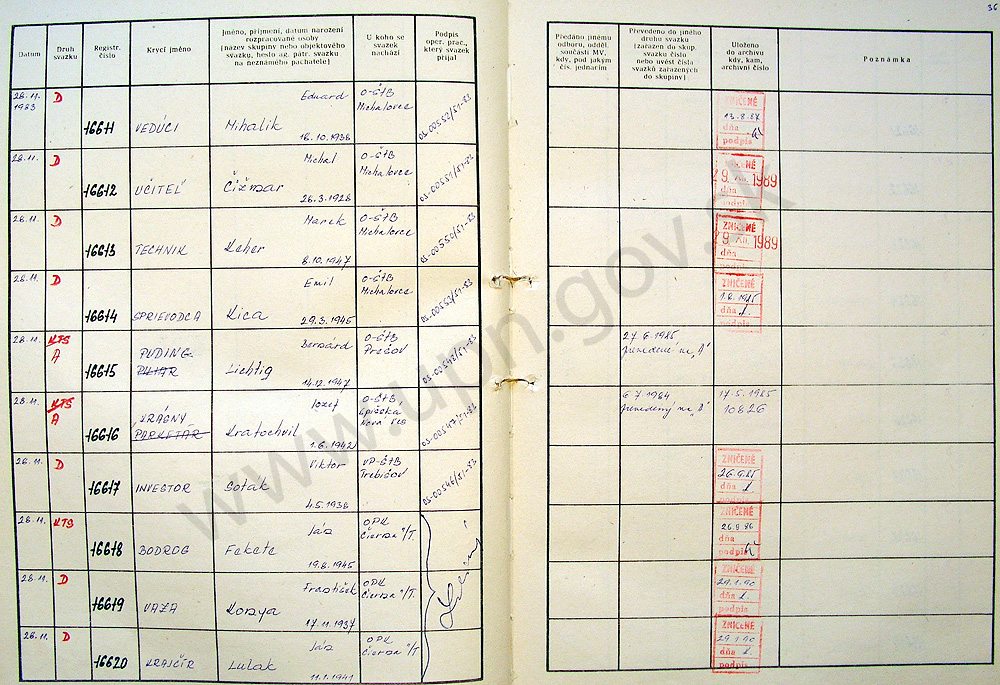 36
Datum
Druh svazku
Registr. číslo
Krycí jméno
Jméno, příjmení, datum narození
rozpracované osoby
(název skupiny nebo objektového
svazku, heslo ag. pátr. svazku
na neznámého pachatele)
U koho se
svazek
nachází
Podpis
oper. prac.,
který svazek
přijal
Předáno jinému
odboru, odděl.
součásti MV.
kdy, pod jakým
čís. jednacím
Převedeno do jiného
druhu svazku
(zařazen do skup.
svazku číslo
nebo uvést čísla
svazků zařazených
do skupiny)
Uloženo
do archivu
kdy, kam,
archivní číslo
Poznámka
28.11. 1983 D 16611 VEDÚCI Eduard Mihalik 16.10.1938 O-ŠtB Michalovce OS-00552/51-83
ZNIČENÉ 13.8.87 dňa podpis
28.11. D 16612 UČITEĽ Michal Čižmar 26.3.1928 O-ŠtB Michalovce OS-00551/51-83
ZNIČENÉ 29. XII. 1989 dňa
28.11. D 16613 TECHNIK Marek Keher 8.10.1947 O-ŠtB Michalovce OS-00550/51-83
ZNIČENÉ 29. XII. 1989 dňa
28.11. D 16614 SPRIEVODCA Emil Kica 29.3.1945 O-ŠtB Michalovce OS-00553/51-83
ZNIČENÉ dňa podpis
28.11. KTS A 16615 PUDING PILIAR Bernárd Lichtig 14.12.1947 O-ŠtB Prešov OS-00548/51-83
27.6.1985 prevedené na "A"
28.11. KTS A 16616 KRÁSNY PARKETÁR Jozef Kratochvil 1.6.1942 O-ŠtB, Spišská Nová Ves OS-00547/51-83
6.7.1984 prevedený na "A" 17.5.1985 10826
28.11. D 16617 INVESTOR Viktor Soták 4.5.1938 VP-ŠtB Trebišov OS-00546/51-83
ZNIČENÉ 26.9.85 dňa
28.11. KTS 16618 BODROG Ján Fekete 19.8.1945 OPK Čierna n/T.
ZNIČENÉ 26.8.86 dňa podpis
28.11. D 16619 VAZA František Konya 17.11.1937 OPK Čierna n/T.
ZNIČENÉ 29.1.90 dňa podpis
28.11. D 16620 KRAJČÍR Ján Lulak 11.1.1941 OPK Čierna n/T
ZNIČENÉ 29.1.90 dňa podpis
www.upn.gov.sk